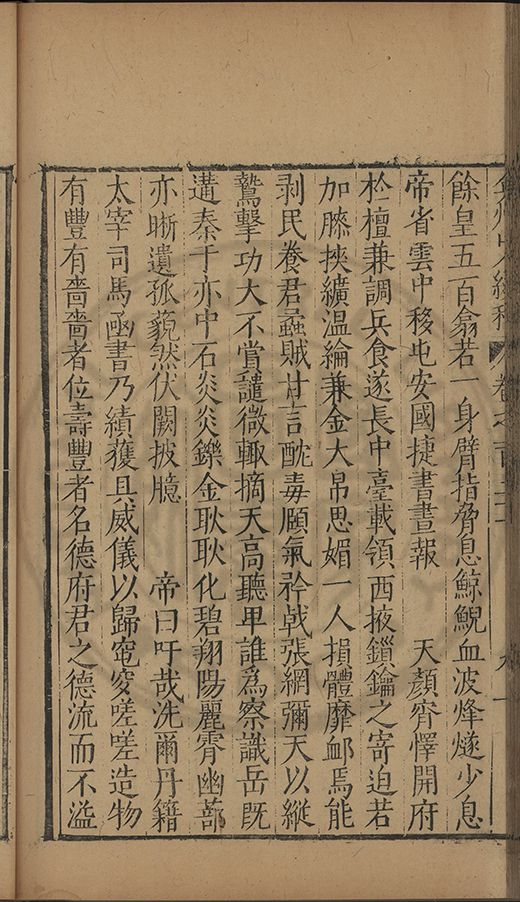 餘皇五百翕若一身臂指脅息鯨鯢血波烽燧少息
帝省雲中移屯安國捷書晝報 天顏霽懌開府
於檀兼調兵食遂長中臺載領西掖鎖鑰之寄迫若
加膝挾纊溫綸兼金大帛思媚一人損體靡卹焉能
剥民養君蟊賊甘言酖毒頤氣矜戟張網彌天以縱
鷙擊功大不賞譴微輙摘天高聽卑誰為察識岳既
遘秦于亦中石炎炎鑠金耿耿化碧翔陽麗霄幽蔀
亦晰遺孤藐然伏闕披臆 帝曰吁哉洗爾丹籍
太宰司馬亟書乃績蒦具威儀以歸窀穸嗟嗟造物
有豐有嗇嗇者位壽豐者名德府君之德流而不溢